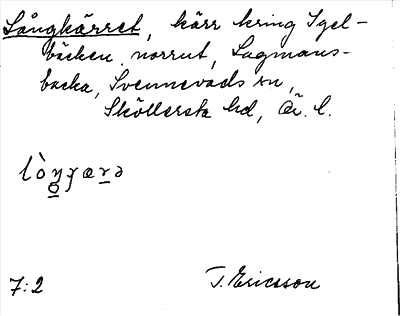 Långkärret, kärr kring Igel-
bäcken norrut, Lagmans-
backa, Svennevads sn,
Sköllersta hd, Ör. l.
7:2 T. Ericsson